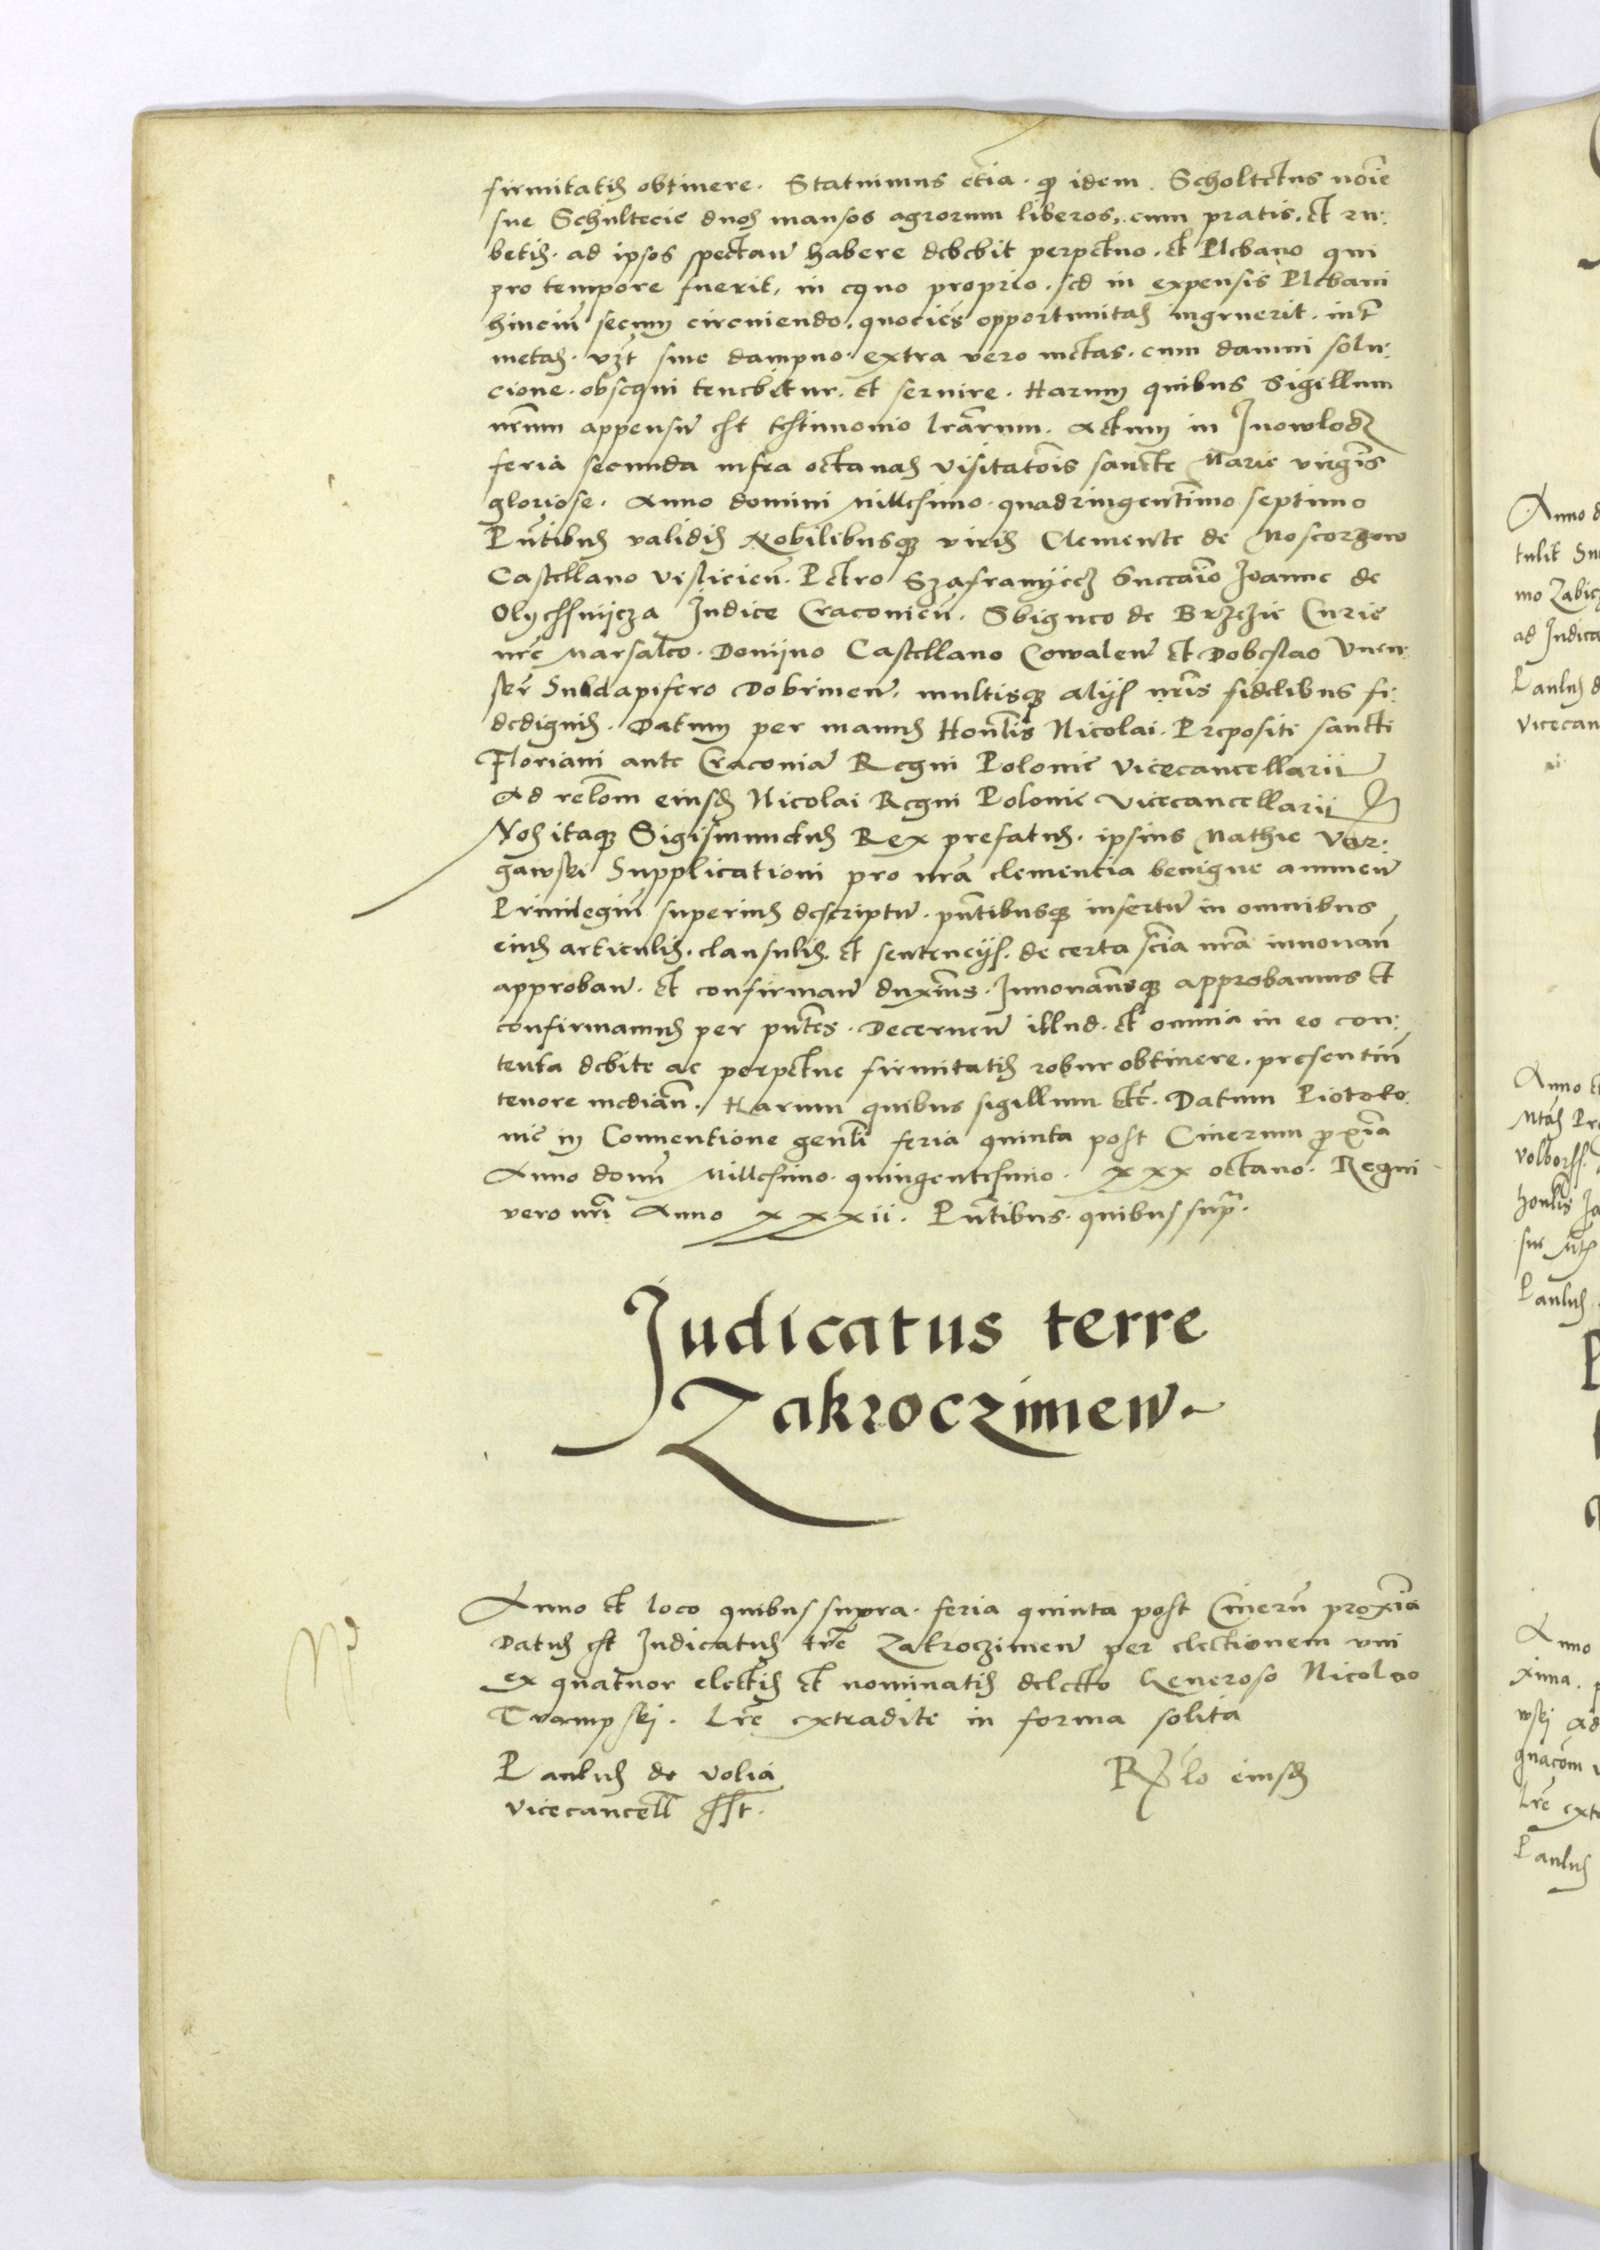 firmitatis obtinere. Statuimus etiã. qp idem. Scholtetus noie
sue Schultecie duos mansos agrorum liberos, cum pratis, et ru:
betis. ad ipsos spectan̄ habere debebit perpetuo. et Plebano qui
pro tempore fuerit, in equo proprio. sed in expensis Plebani
hincin̄ secum circuiendo, quocieš opportunitas ingruerit. int̄
metas. vz̄t sine dampno. extra vero metas. cum damni solu:
cione. obsequi tenebitur. et seruire. Harum quibus Sigillum
nr̄um appensū est testimonio lrārum. Actum in Jnowlodz
feria secunda infra octauas visitatōis sancte Marie virgīs
gloriose. Anno domini Millesimo. quadringentīmo septimo
Pn̄tibus validis Nobilibusqꝫ viris Clemente de Moscorzow
Castellano visliciēn̄. Petro Szafranyecz Succaīo Joanne de
Olychsnijcza Judice Cracouieñ. Sbigneo de Brzezie Curie
nr̄e Marsalco. Domyno Castellano Cowaleñ et Dobeslao Vnen:
ser̄ Subdapifero Dobrineñ. multisqꝫ alijs nr̄is fidelibus fi:
dedignis. Datum per manus Honlīs Nicolai. Prepositi sancti
Floriani ante Cracouiā Regni Polonie Vicecancellarii
Ad relōm eiusdē Nicolai Regni Polonie Vicecancellarii
Nos itaqꝫ Sigismundus Rex prefatus. ipsius Mathie Var:
gawski Supplicationi pro nr̄a clementia benigne annueñ
Priuilegiū superius descriptū. pn̄tibusqꝫ insertū in omnibus
eius articulis. clausulis. et sentencijs. de certa scīa nr̄a innouan̄
approban̄. et confirman̄ duxīmus. Jnnouam̄usqꝫ approbamus et
confirmamus per pn̄tes. Decerneñ illud. et omnia in eo con:
tenta debite ac perpetue firmitatis robur obtinere. presentiū
tenore median̄. Harum quibus sigillum etc̄. Datum Piotrko
uie in Conuentione genlī feria quinta post Cinerum pr̄oxīa
Anno domī Millesimo. quingentesimo. xxx octauo. Regni
vero nr̄i Anno xxxii. Pn̄tibus. quibus supr̄.
Judicatus terre
Zakroczimeñ.
Anno et loco quibus supra. feria quinta post Cinerū proxīa
Datus est Judicatus tr̄e Zakroczimeñ per electionem vni
ex quatuor electis et nominatis delecto Generoso Nicolao
Trampski. Lr̄e extradite in forma solita
Paulus de Volia
vicecancell̄ sst.
Rlo eiusdē